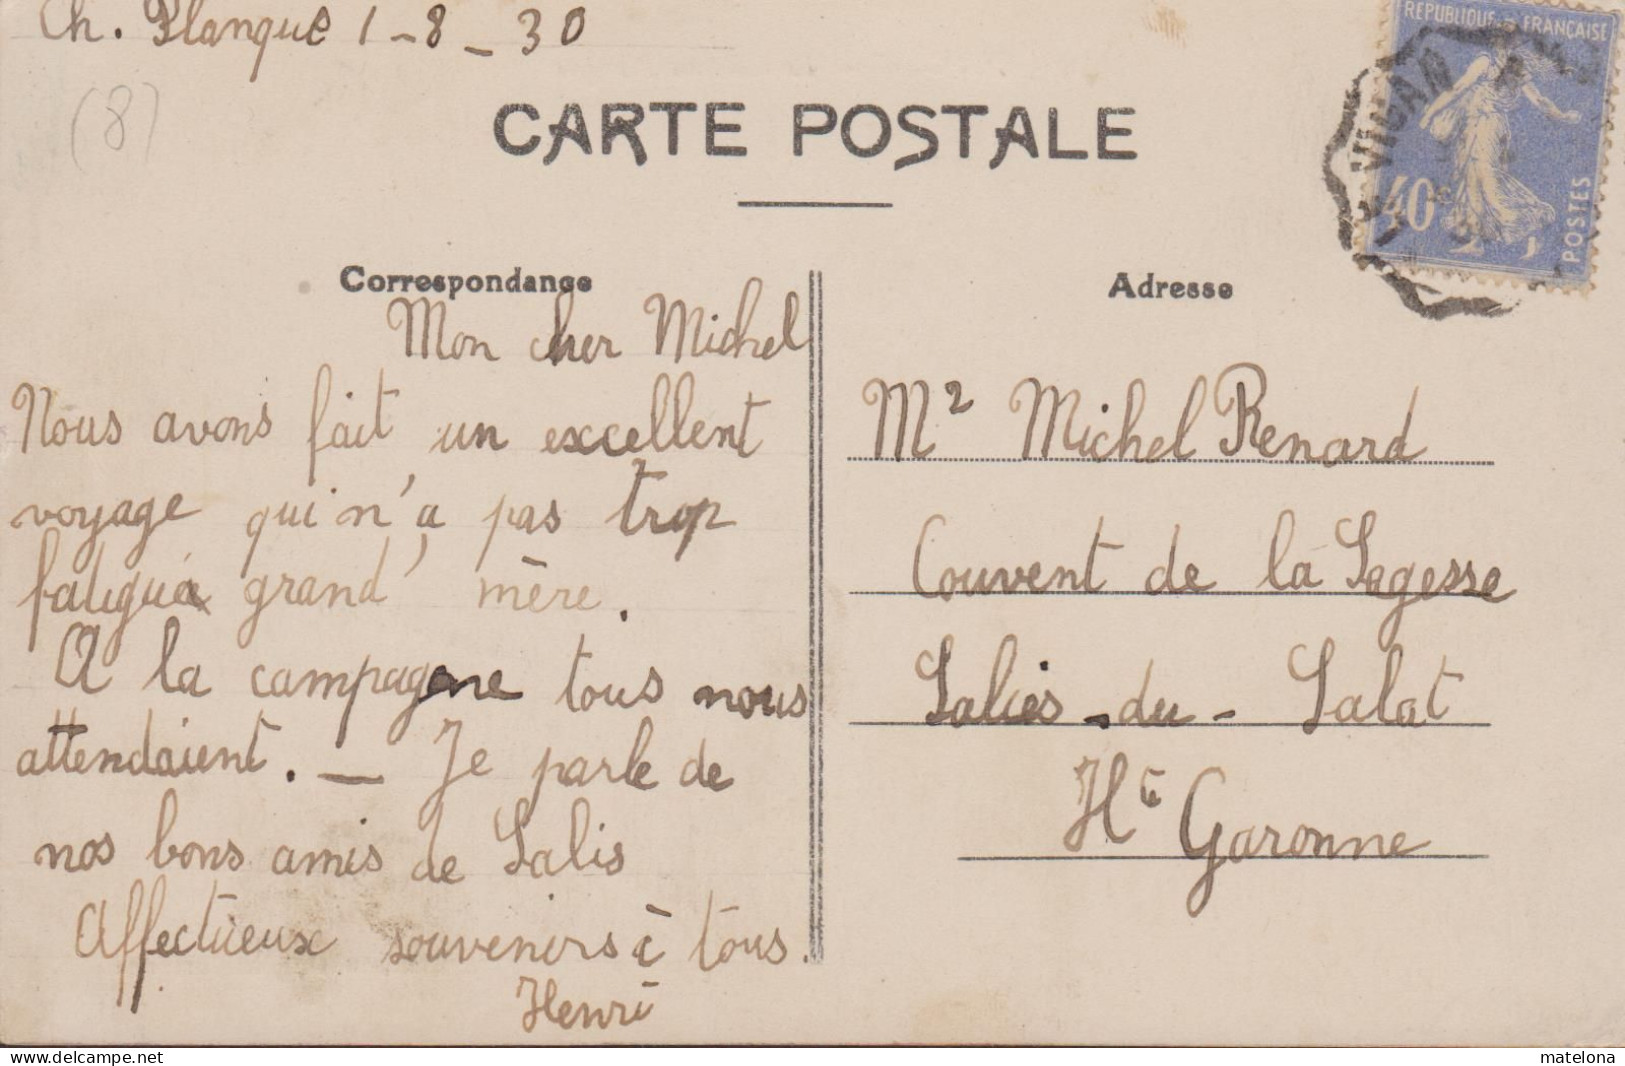 Ch. Planque 1-8-30
(8)
REPUBLIQUE FRANÇAISE
VIGAN
40
POSTES
CARTE POSTALE
Correspondance
Mon cher Michel
Nous avons fait un excellent
voyage qui n'a pas trop
fatigué grand' mère.
A la campagne tous nous
attendaient. — Je parle de
nos bons amis de Salis
Affectueux souvenirs à tous.
Henri
Adresse
Mr Michel Renard
Couvent de la Sagesse
Salies-du-Salat
Hte Garonne
delcampe.net
matelona